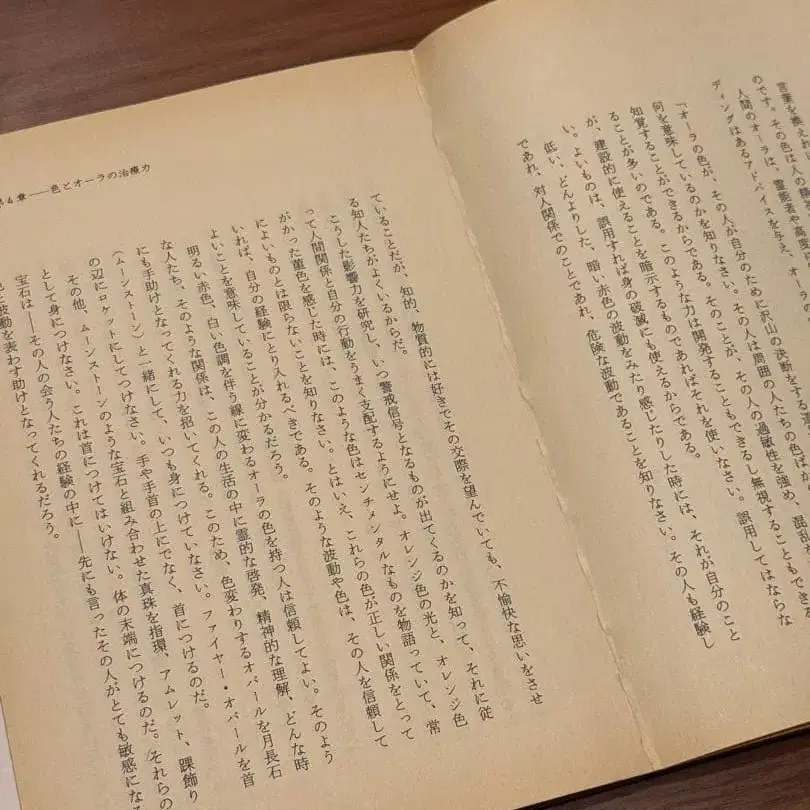 言葉を換えれば
のです。その色は人の精
人間のオーラは、霊能者や高度に
ディングはあるアドバイスを与え、オーラの
「オーラの色が、その人が自分のために沢山の決断をする違
何を意味しているのかを知りなさい。その人は周囲の人たちの色ばか
知覚することができるからである。そのことが、その人の過敏性を強め、混乱
ることが多いのである。このような力は開発することもできるし無視することもできる
が、建設的に使えることを暗示するものであればそれを使いなさい。誤用してはならな
い。よいものは、誤用すれば身の破滅にも使えるからである。
低い、どんよりした、暗い赤色の波動をみたり感じたりした時には、それが自分のこと
であれ、対人関係でのことであれ、危険な波動であることを知りなさい。その人も経験し
ていることだが、知的、物質的には好きでその交際を望んでいても、不愉快な思いをさせ
る知人たちがよくいるからだ。
こうした影響力を研究し、いつ警戒信号となるものが出てくるのかを知って、それに従
って人間関係と自分の行動をうまく支配するようにせよ。オレンジ色の光と、オレンジ色
がかった菫色を感じた時には、このような色はセンチメンタルなものを物語っていて、常
によいものとは限らないことを知りなさい。とはいえ、これらの色が正しい関係をとって
いれば、自分の経験にとり入れるべきである。そのような波動や色は、その人を信頼して
よいことを意味していることが分かるだろう。
明るい赤色、白い色調を伴う線に変わるオーラの色を持つ人は信頼してよい。そのよう
な人たち、そのような関係は、この人の生活の中に霊的な啓発、精神的な理解、どんな時
にも手助けとなってくれる力を招いてくれる。このため、色変わりするオパールを月長石
（ムーンストーン）と一緒にして、いつも身につけていなさい。ファイヤー・オパールを首
の辺にロケットにしてつけなさい。手や手首の上にでなく、首につけるのだ。
その他、ムーンストーンのような宝石と組み合わせた真珠を指環、アムレット、踝飾り
として身につけなさい。これは首につけてはいけない。体の末端につけるのだ。それらの
宝石は――その人の会う人たちの経験の中に――先にも言ったその人がとても敏感にな
と波動を表わす助けとなってくれるだろう。
4章――色とオーラの治療力